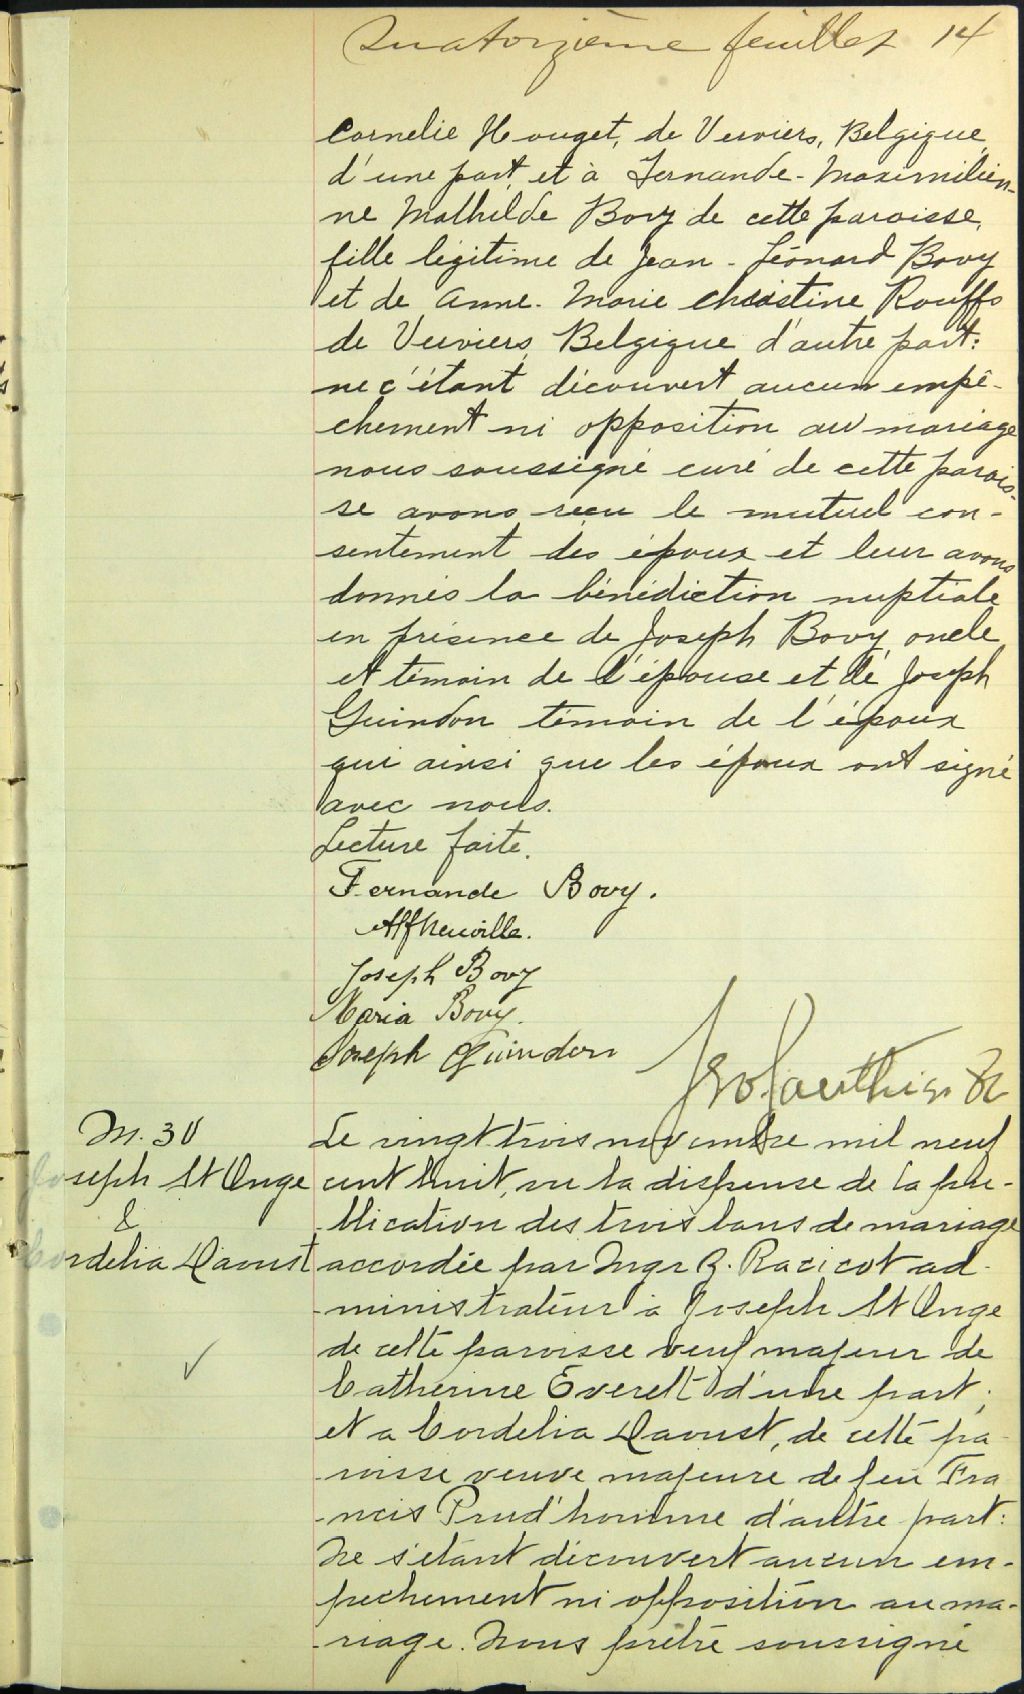 Quatorzième feuillet 14
Cornelie Houget, de Verviers, Belgique,
d'une part, et à Fernande-Maximilien-
ne Mathilde Bovy de cette paroisse,
fille légitime de Jean-Léonard Bovy
et de Anne-Marie Christine Rouffs
de Verviers, Belgique d'autre part:
ne c'étant découvert aucun empê-
chement ni opposition au mariage
nous soussigné curé de cette parois-
se avons reçu le mutuel con-
sentement des époux et leur avons
donnés la bénédiction nuptiale
en présence de Joseph Bovy, oncle
et témoin de l'épouse et de Joseph
Guindon témoin de l'époux
qui ainsi que les époux ont signé
avec nous.
Lecture faite.
Fernande Bovy.
Alf Neuville.
Joseph Bovy
Maria Bovy.
Joseph Guindon
Gauthier
M. 30
Joseph St Onge
&
Cordelia Daoust
Le vingt trois novembre mil neuf
cent huit, vu la dispense de la pu-
-blication des trois bans de mariage
accordée par Mgr Z. Racicot ad-
-ministrateur à Joseph St Onge
de cette paroisse veuf majeur de
Catherine Everett d'une part;
et a Cordelia Daoust, de cette pa-
-roisse veuve majeure de feu Fra
-ncis Prud'homme d'autre part:
Ne s'étant découvert aucun em-
pechement ni opposition au ma-
-riage. Nous prêtre soussigné